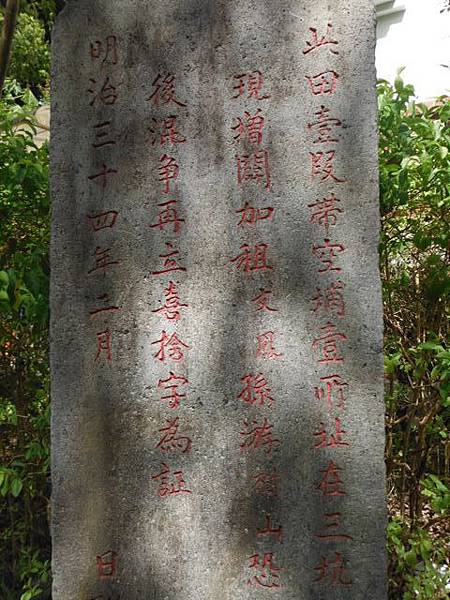 此田臺段帶空埔壹所址在三坑
現增闢加租文鳳孫游 山恐
後混争再立喜捨字為証
明治三十四年二月 日